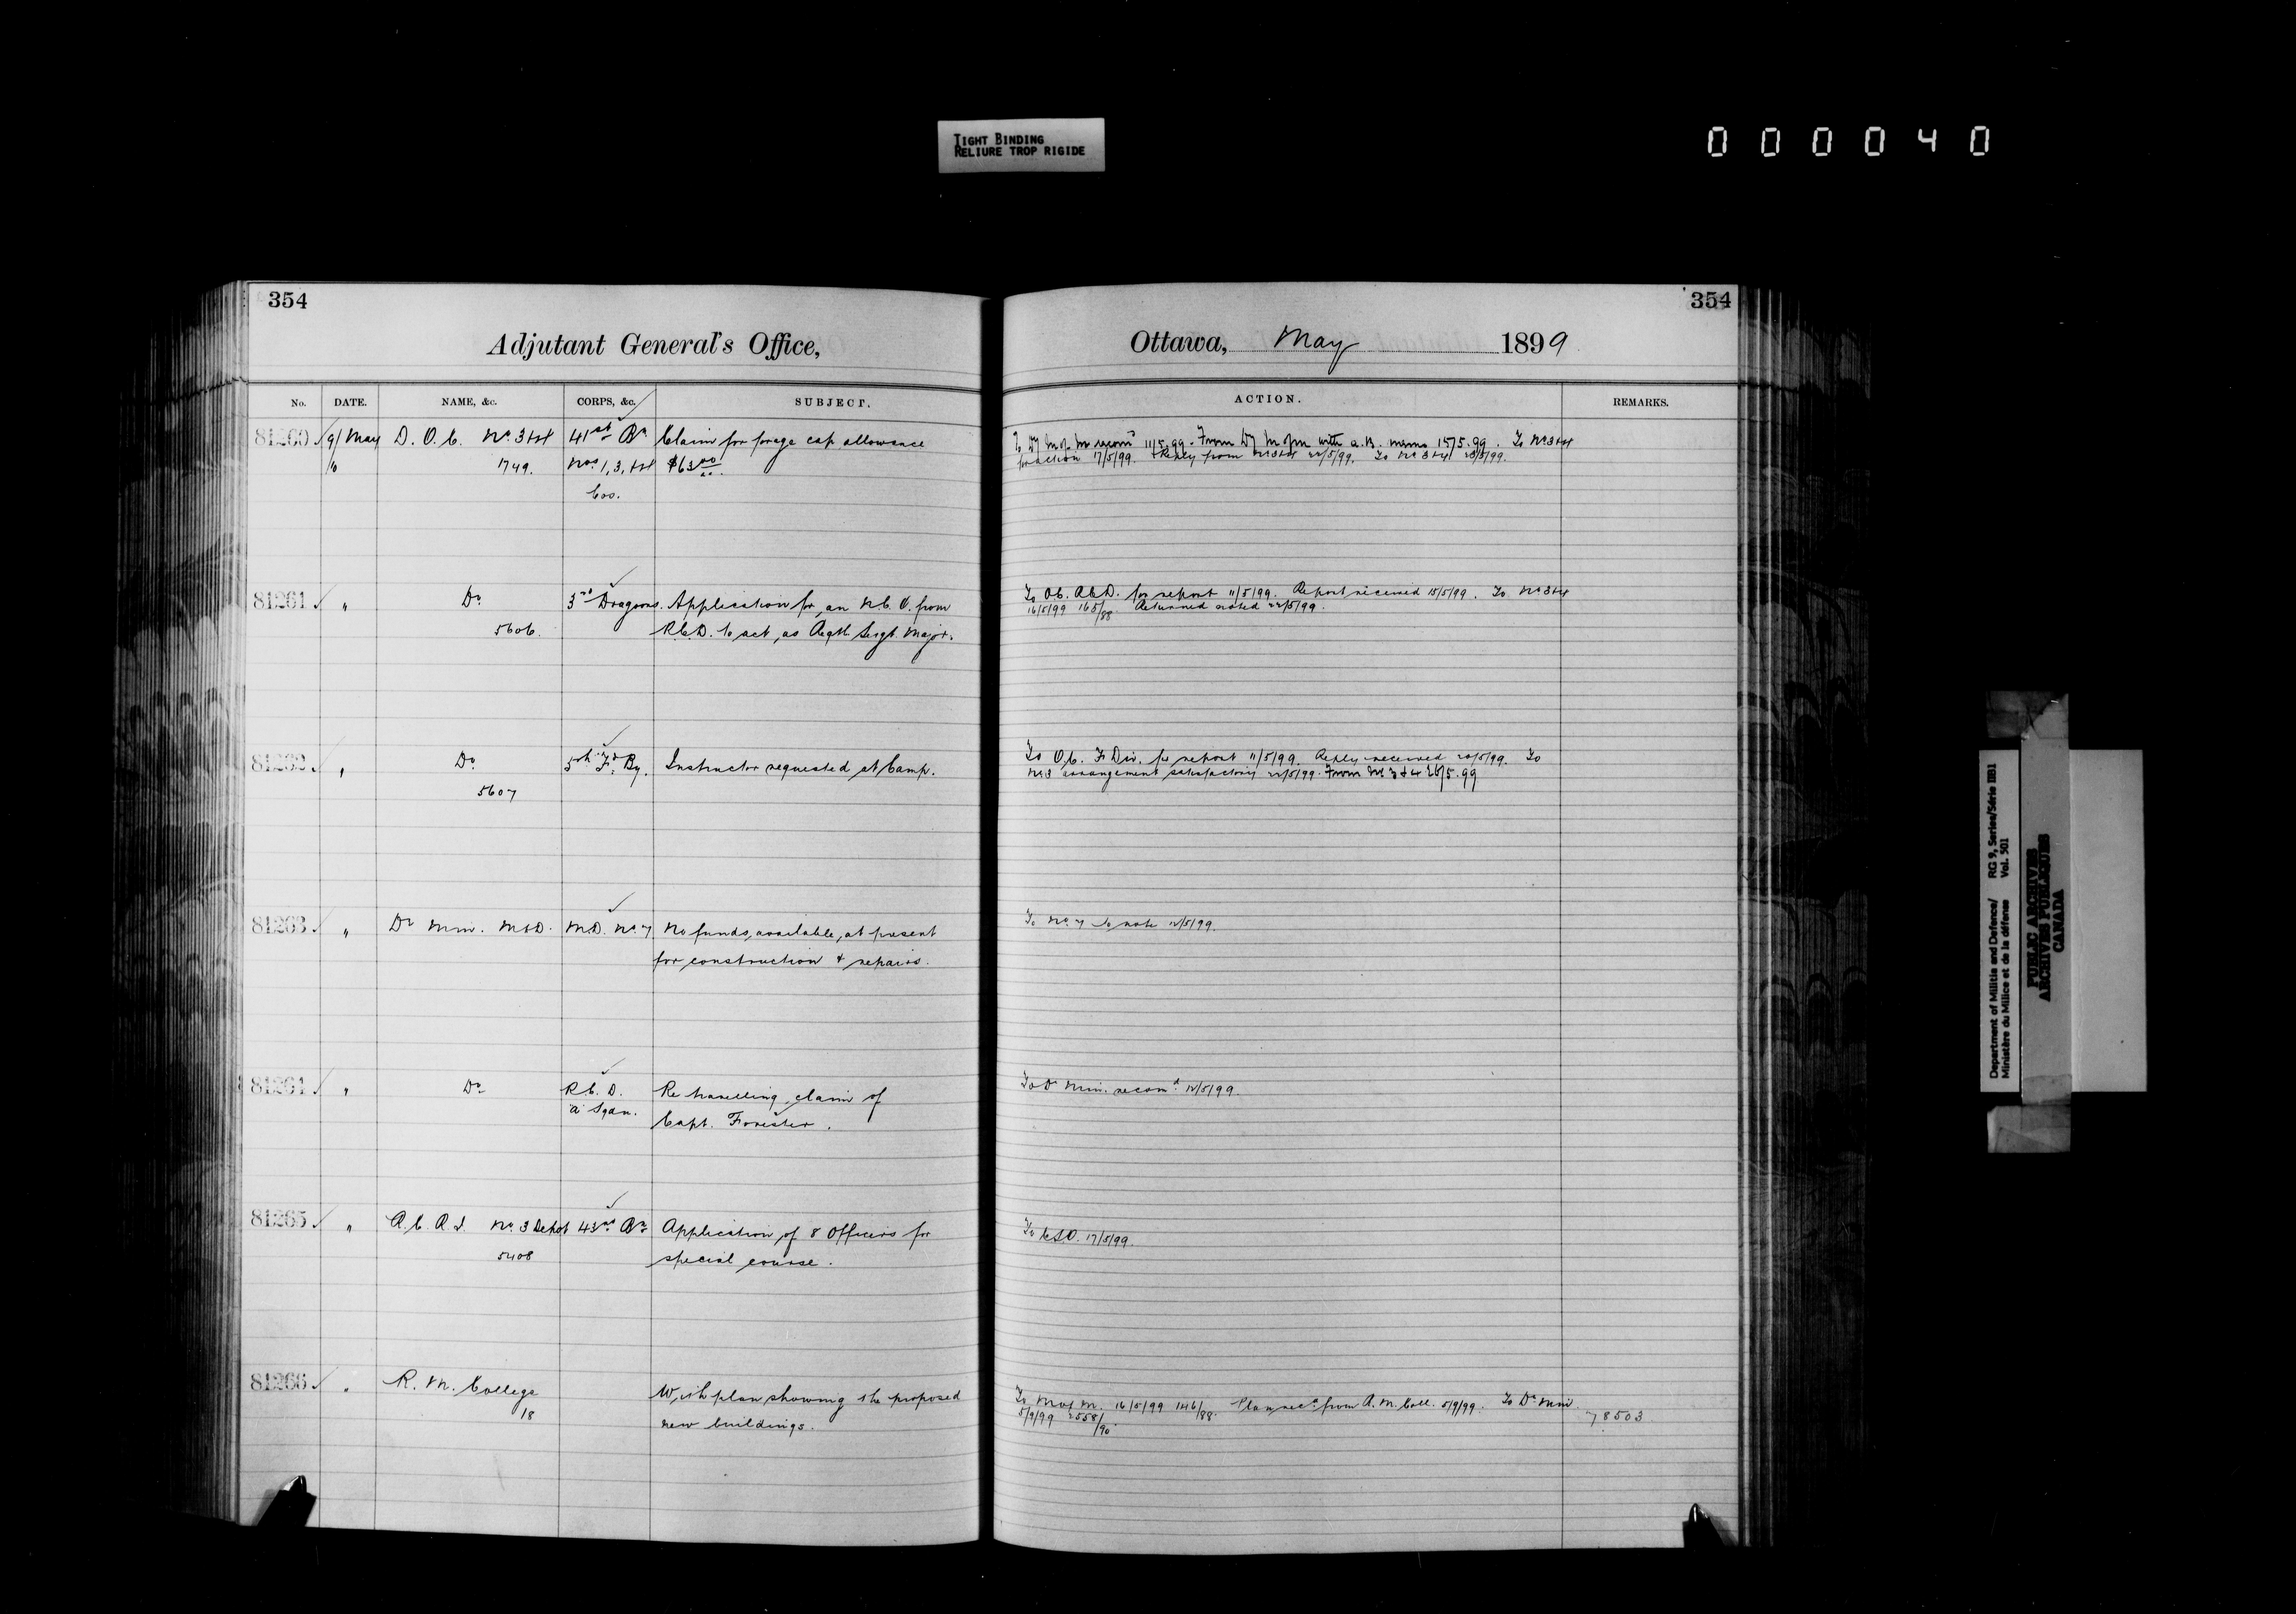 TIGHT BINDING
RELIURE TROP RIGIDE
000040
354
354
Adjutant General's Office,
Ottawa, May 1899
No. DATE. NAME, &c. CORPS, &c. SUBJECT. ACTION. REMARKS.
81260 9/ May D. O. C. No 3 & 4 41st Bn Claim for forage cap allowance
1749. Nos 1, 3, & 4 $63.00
Cos.
To Dy M of M recomd 11/5.99. From Dy M of M with A.B. memo 15/5.99. To No 3 & 4
for action 17/5/99. Reply from No 3 & 4 22/5/99. To No 3 & 4 23/5/99.
81261 " Do 3rd Dragoons. Application for an N.C.O. from
5606. R.C.D. to act as Regtl. Sergt. Major.
To O.C. R.C.D. for report 11/5/99. Report received 15/5/99. To No 3 & 4
16/5/99 165/88 Returned noted 22/5/99.
81262 " Do 5th Fd By. Instructor requested at Camp.
5607
To O.C. F Div. for report 11/5/99. Reply received 20/5/99. To
No 3 arrangement satisfactory 22/5/99. From No 3 & 4 26/5.99
81263 " Dr Min. M & D. M.D. No 7 No funds available at present
for construction & repairs.
To No 7 to note 12/5/99.
81264 " Do R.C.D. Re travelling claim of
"A" Sqdn. Capt. Forester.
To D Min. recomd 12/5/99.
81265 " R.C.R.I. No 3 Depot 43rd Bn Application of 8 Officers for
5408 special course.
To C.S.O. 17/5/99.
81266 " R. M. College With plan showing the proposed
18 new buildings.
To M of M. 16/5/99 1246/88. Plan recd from R.M. Coll. 5/9/99. To Dr Min
5/9/99 2558/90.
78503
Department of Militia and Defence/ RG 9, Series/Série IIB1
Ministère du Milice et de la défense Vol. 501
PUBLIC ARCHIVES
ARCHIVES PUBLIQUES
CANADA